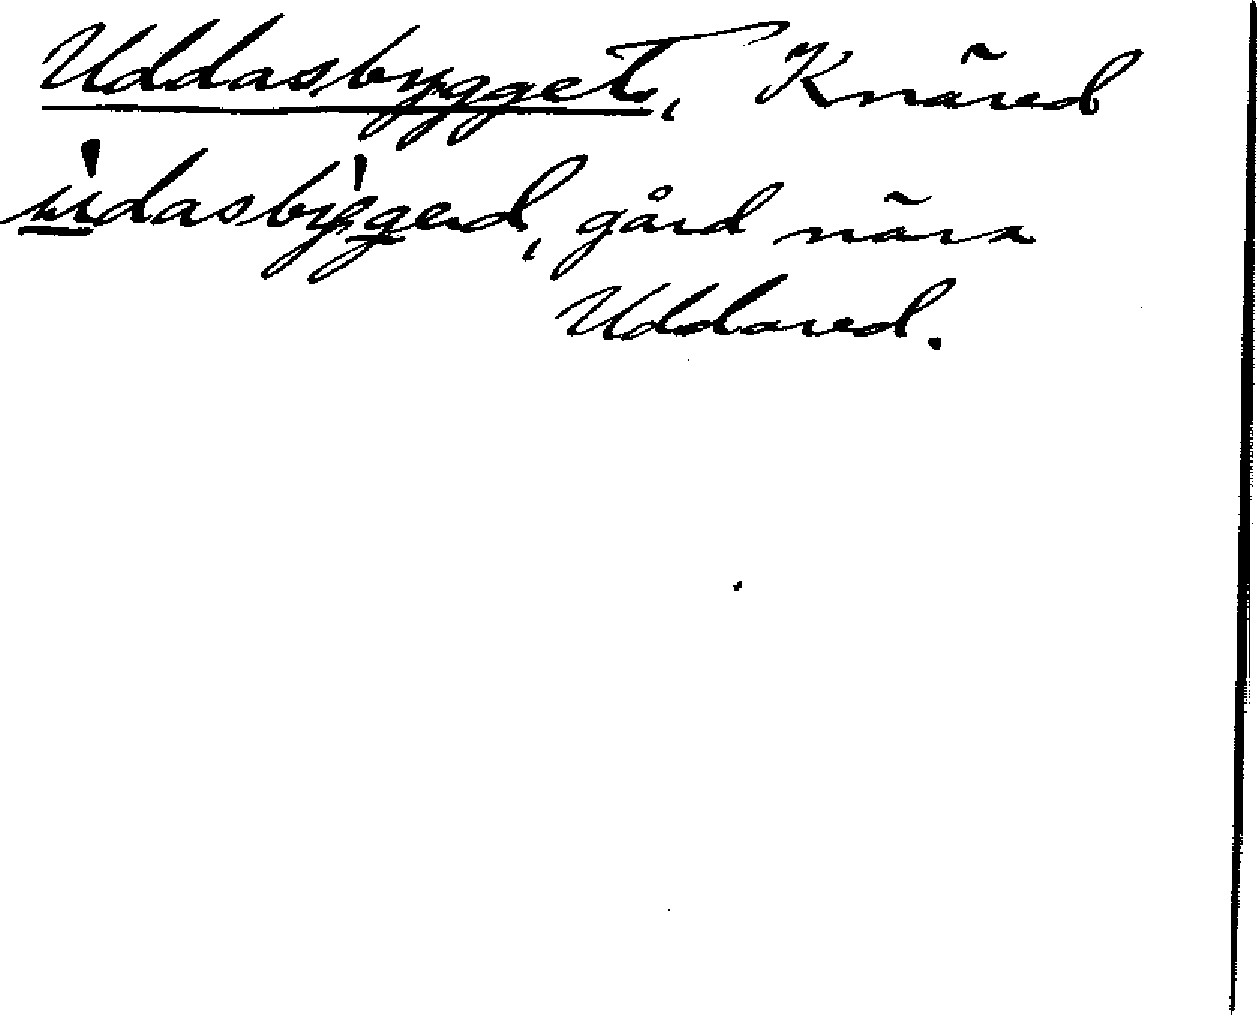 Uddasbygget, Knäred
údasbýgerd, gård nära
Uddared.